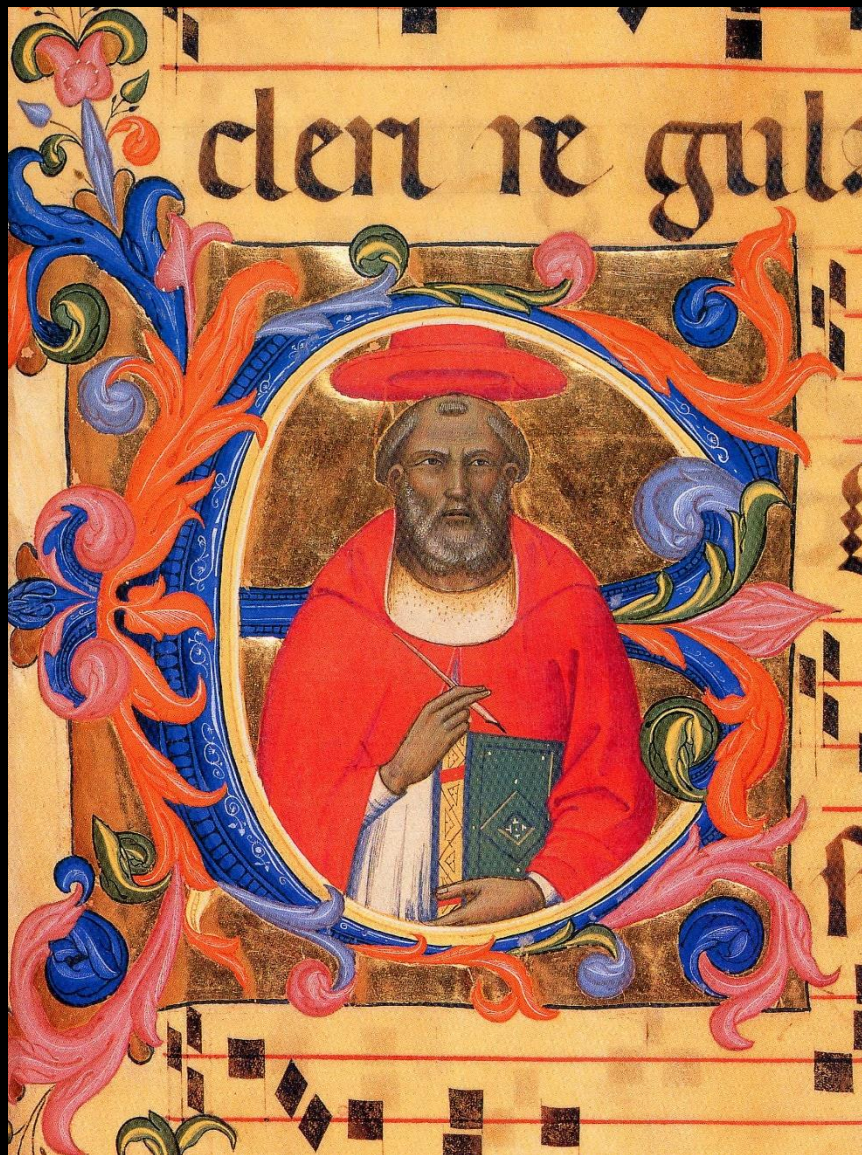 cleri re gul
E